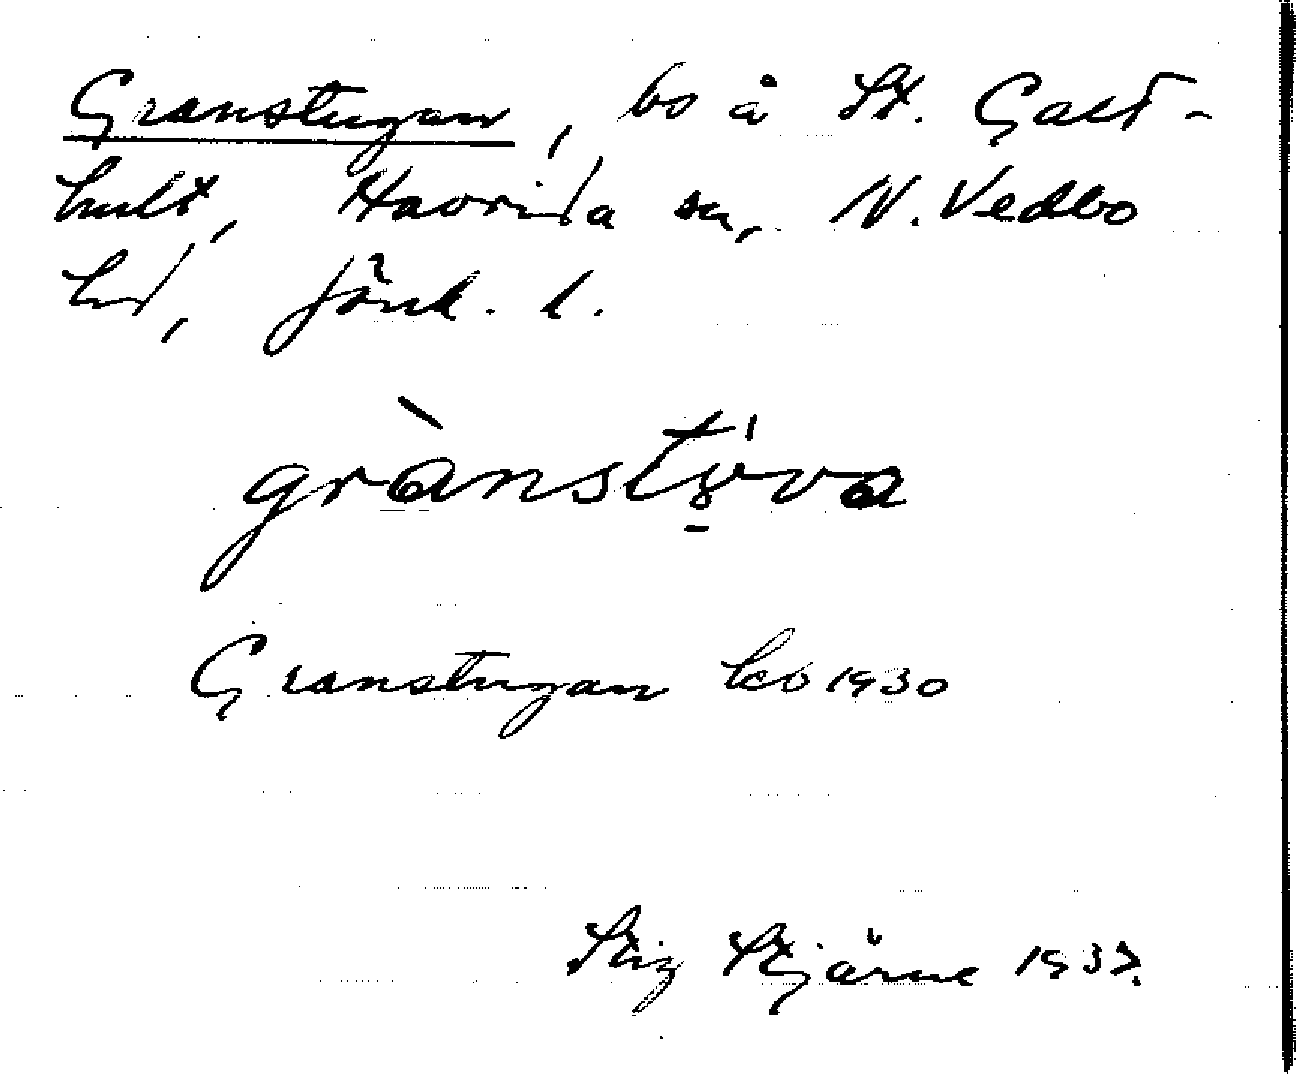 Granstugan, bo å St. Galt-
hult, Haurida sn, N. Vedbo
hd, Jönk. l.
grànstÿva
Granstugan 1930
Stig Stjärne 1937.